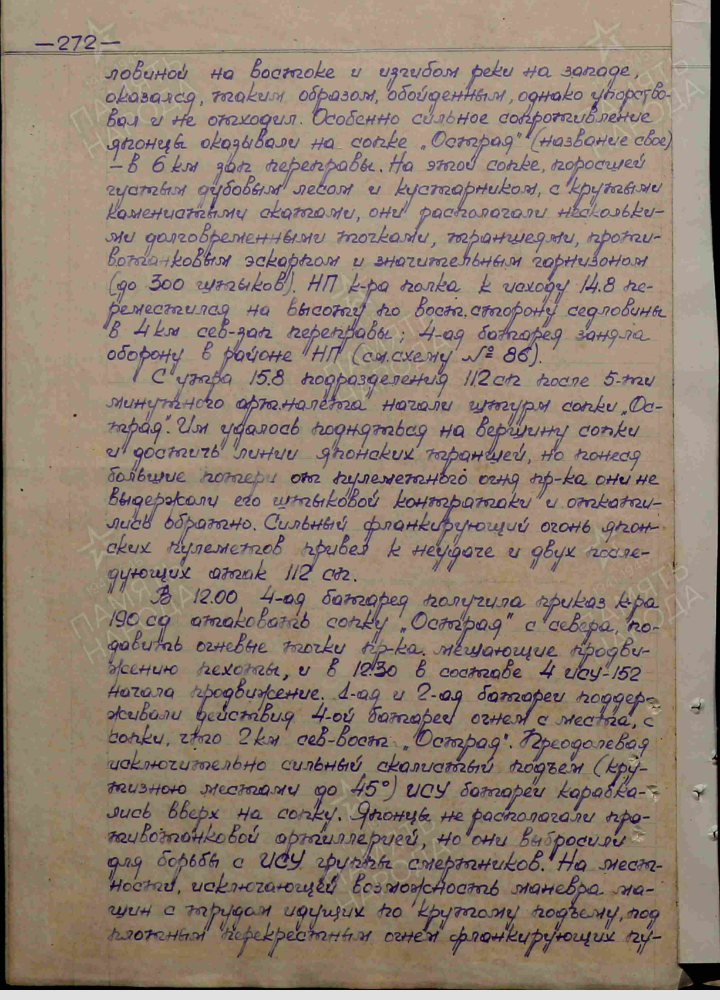 —272—
ловиной на востоке и изгибом реки на западе,
оказался, таким образом, обойденным, однако упорство-
вал и не отходил. Особенно сильное сопротивление
японцы оказывали на сопке „Острая" (название свое)
– в 6 км зап переправы. На этой сопке, поросшей
густым дубовым лесом и кустарником, с крутыми
каменистыми скатами, они располагали нескольки-
ми долговременными точками, траншеями, проти-
вотанковым эскарпом и значительным гарнизоном
(до 300 штыков). НП к-ра полка к исходу 14.8 пе-
реместился на высоту по вост. сторону седловины
в 4 км сев-зап переправы; 4-ая батарея заняла
оборону в районе НП (см.схему № 86).
С утра 15.8 подразделения 112 сп после 5-ти
минутного арт.налета начали штурм сопки „Ос-
трая". Им удалось подняться на вершину сопки
и достичь линии японских траншей, но понеся
большие потери от пулеметного огня пр-ка они не
выдержали его штыковой контратаки и откати-
лись обратно. Сильный фланкирующий огонь япон-
ских пулеметов привел к неудаче и двух после-
дующих атак 112 сп.
В 12.00 4-ая батарея получила приказ к-ра
190 сд атаковать сопку „Острая" с севера, по-
давить огневые точки пр-ка. мешающие продви-
жению пехоты, и в 12.30 в составе 4 ИСУ-152
начала продвижение. 1-ая и 2-ая батареи поддер-
живали действия 4-ой батареи огнем с места, с
сопки, что 2 км сев-вост „Острая". Преодолевая
исключительно сильный скалистый подъем (кру-
тизною местами до 45°) ИСУ батареи карабка-
лись вверх на сопку. Японцы не располагали про-
тивотанковой артиллерией, но они выбросили
для борьбы с ИСУ группы смертников. На мест-
ности, исключающей возможность маневра ма-
шин с трудом идущих по крутому подъему, под
плотным перекрестным огнем фланкирующих пу-